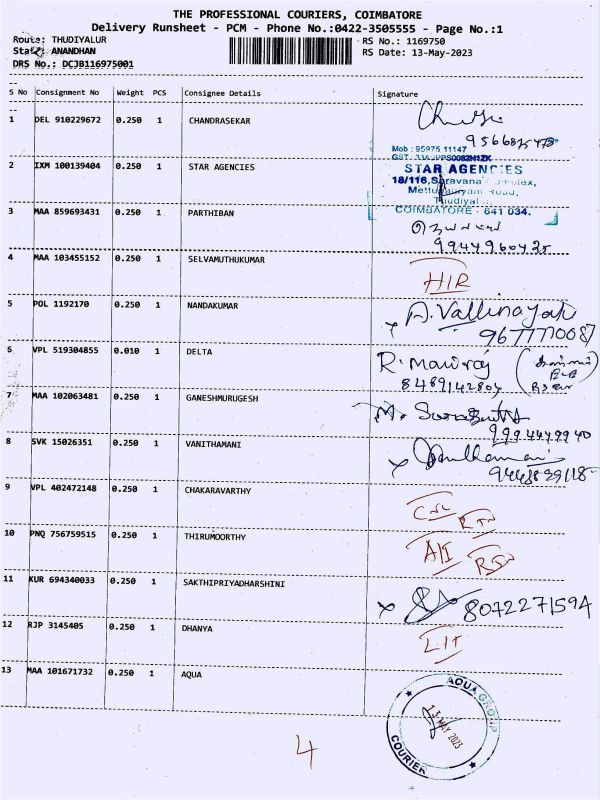 THE PROFESSIONAL COURIERS, COIMBATORE
Delivery Runsheet - PCM - Phone No.:0422-3505555 - Page No.:1
Route: THUDIYALUR RS No.: 1169750
Staff: ANANDHAN RS Date: 13-May-2023
DRS No.: DCJB116975001
S No Consignment No Weight PCS Consignee Details Signature
1 DEL 910229672 0.250 1 CHANDRASEKAR
Mob : 95975 11147
2 IXM 100139404 0.250 1 STAR AGENCIES STAR AGENCIES
18/116, Saravana
COIMBATORE - 641 034.
3 MAA 859693431 0.250 1 PARTHIBAN
9944960425
4 MAA 103455152 0.250 1 SELVAMUTHUKUMAR
5 POL 1192170 0.250 1 NANDAKUMAR A. Vallinayak
9677770087
6 VPL 519304855 0.010 1 DELTA R.
8489142804
7 MAA 102063481 0.250 1 GANESHMURUGESH M.
8 SVK 15026351 0.250 1 VANITHAMANI
9 VPL 402472148 0.250 1 CHAKARAVARTHY
10 PNQ 756759515 0.250 1 THIRUMOORTHY
11 KUR 694340033 0.250 1 SAKTHIPRIYADHARSHINI
8072271594
12 RJP 3145405 0.250 1 DHANYA
13 MAA 101671732 0.250 1 AQUA
AQUA GROUP
13 MAY 2023
COURIER
4